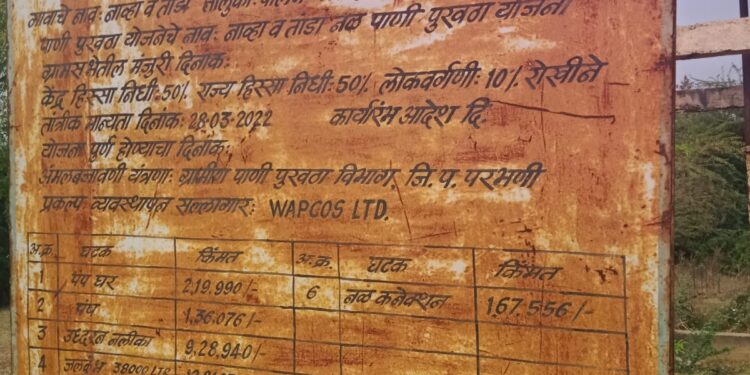 गावाचे नाव: नाव्हा व तांडा तालुका:
पाणी पुरवठा योजनेचे नाव: नाव्हा व तांडा नळ पाणी पुरवठा योजना
ग्रामसभेतील मंजुरी दिनांक:
केंद्र हिस्सा निधी:50% राज्य हिस्सा निधी:50% लोकवर्गणी:10% रोखीने
तांत्रीक मान्यता दिनांक: 28-03-2022 कार्यारंभ आदेश दि.
योजना पुर्ण होण्याचा दिनांक:
अंमलबजावणी यंत्रणा: ग्रामीण पाणी पुरवठा विभाग, जि.प. परभणी
प्रकल्प व्यवस्थापन सल्लागार: WAPCOS LTD.
अ.क्र. घटक किंमत अ.क्र. घटक किंमत
1 पंप घर 2,19,990/- 6 नळ कनेक्शन 1,67,556/-
2 पंप 1,36,076/-
3 उध्दरन नलीका 9,28,940/-
4 जलकुंभ 38000